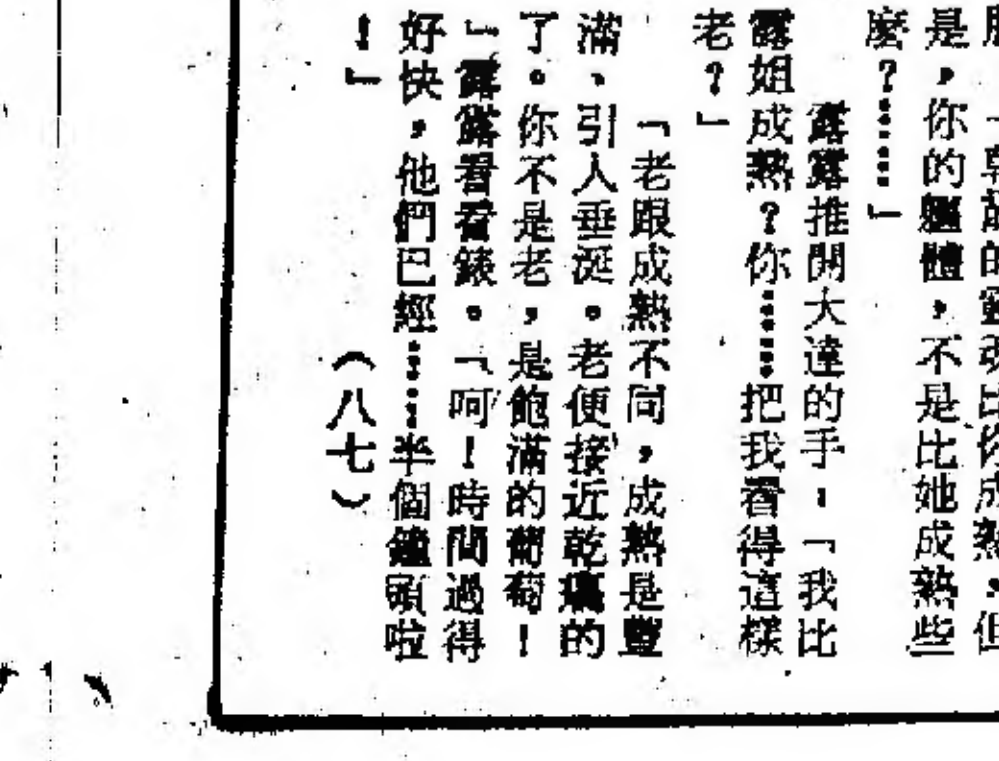 的靈魂比你成熟，但
是，你的軀體，不是比她成熟些
麼？……」
露露推開大達的手：「我比
露姐成熟？你……把我看得這樣
老？」
「老跟成熟不同，成熟是豐
滿、引人垂涎。老便接近乾癟的
了。你不是老，是飽滿的葡萄！
」露露看看錶。「呵！時間過得
好快，他們已經……半個鐘頭啦
！」
（八七）